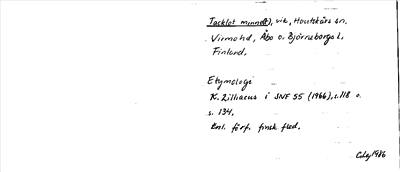 Tacklot minne(t), vik, Houtskärs sn.
Virmo hd, Åbo o. Björneborgs l.
Finland.
Etymologi
K. Zilliacus i SNF 55 (1966), s. 118 o.
s. 134.
Enl. förf. finsk fled.
1986